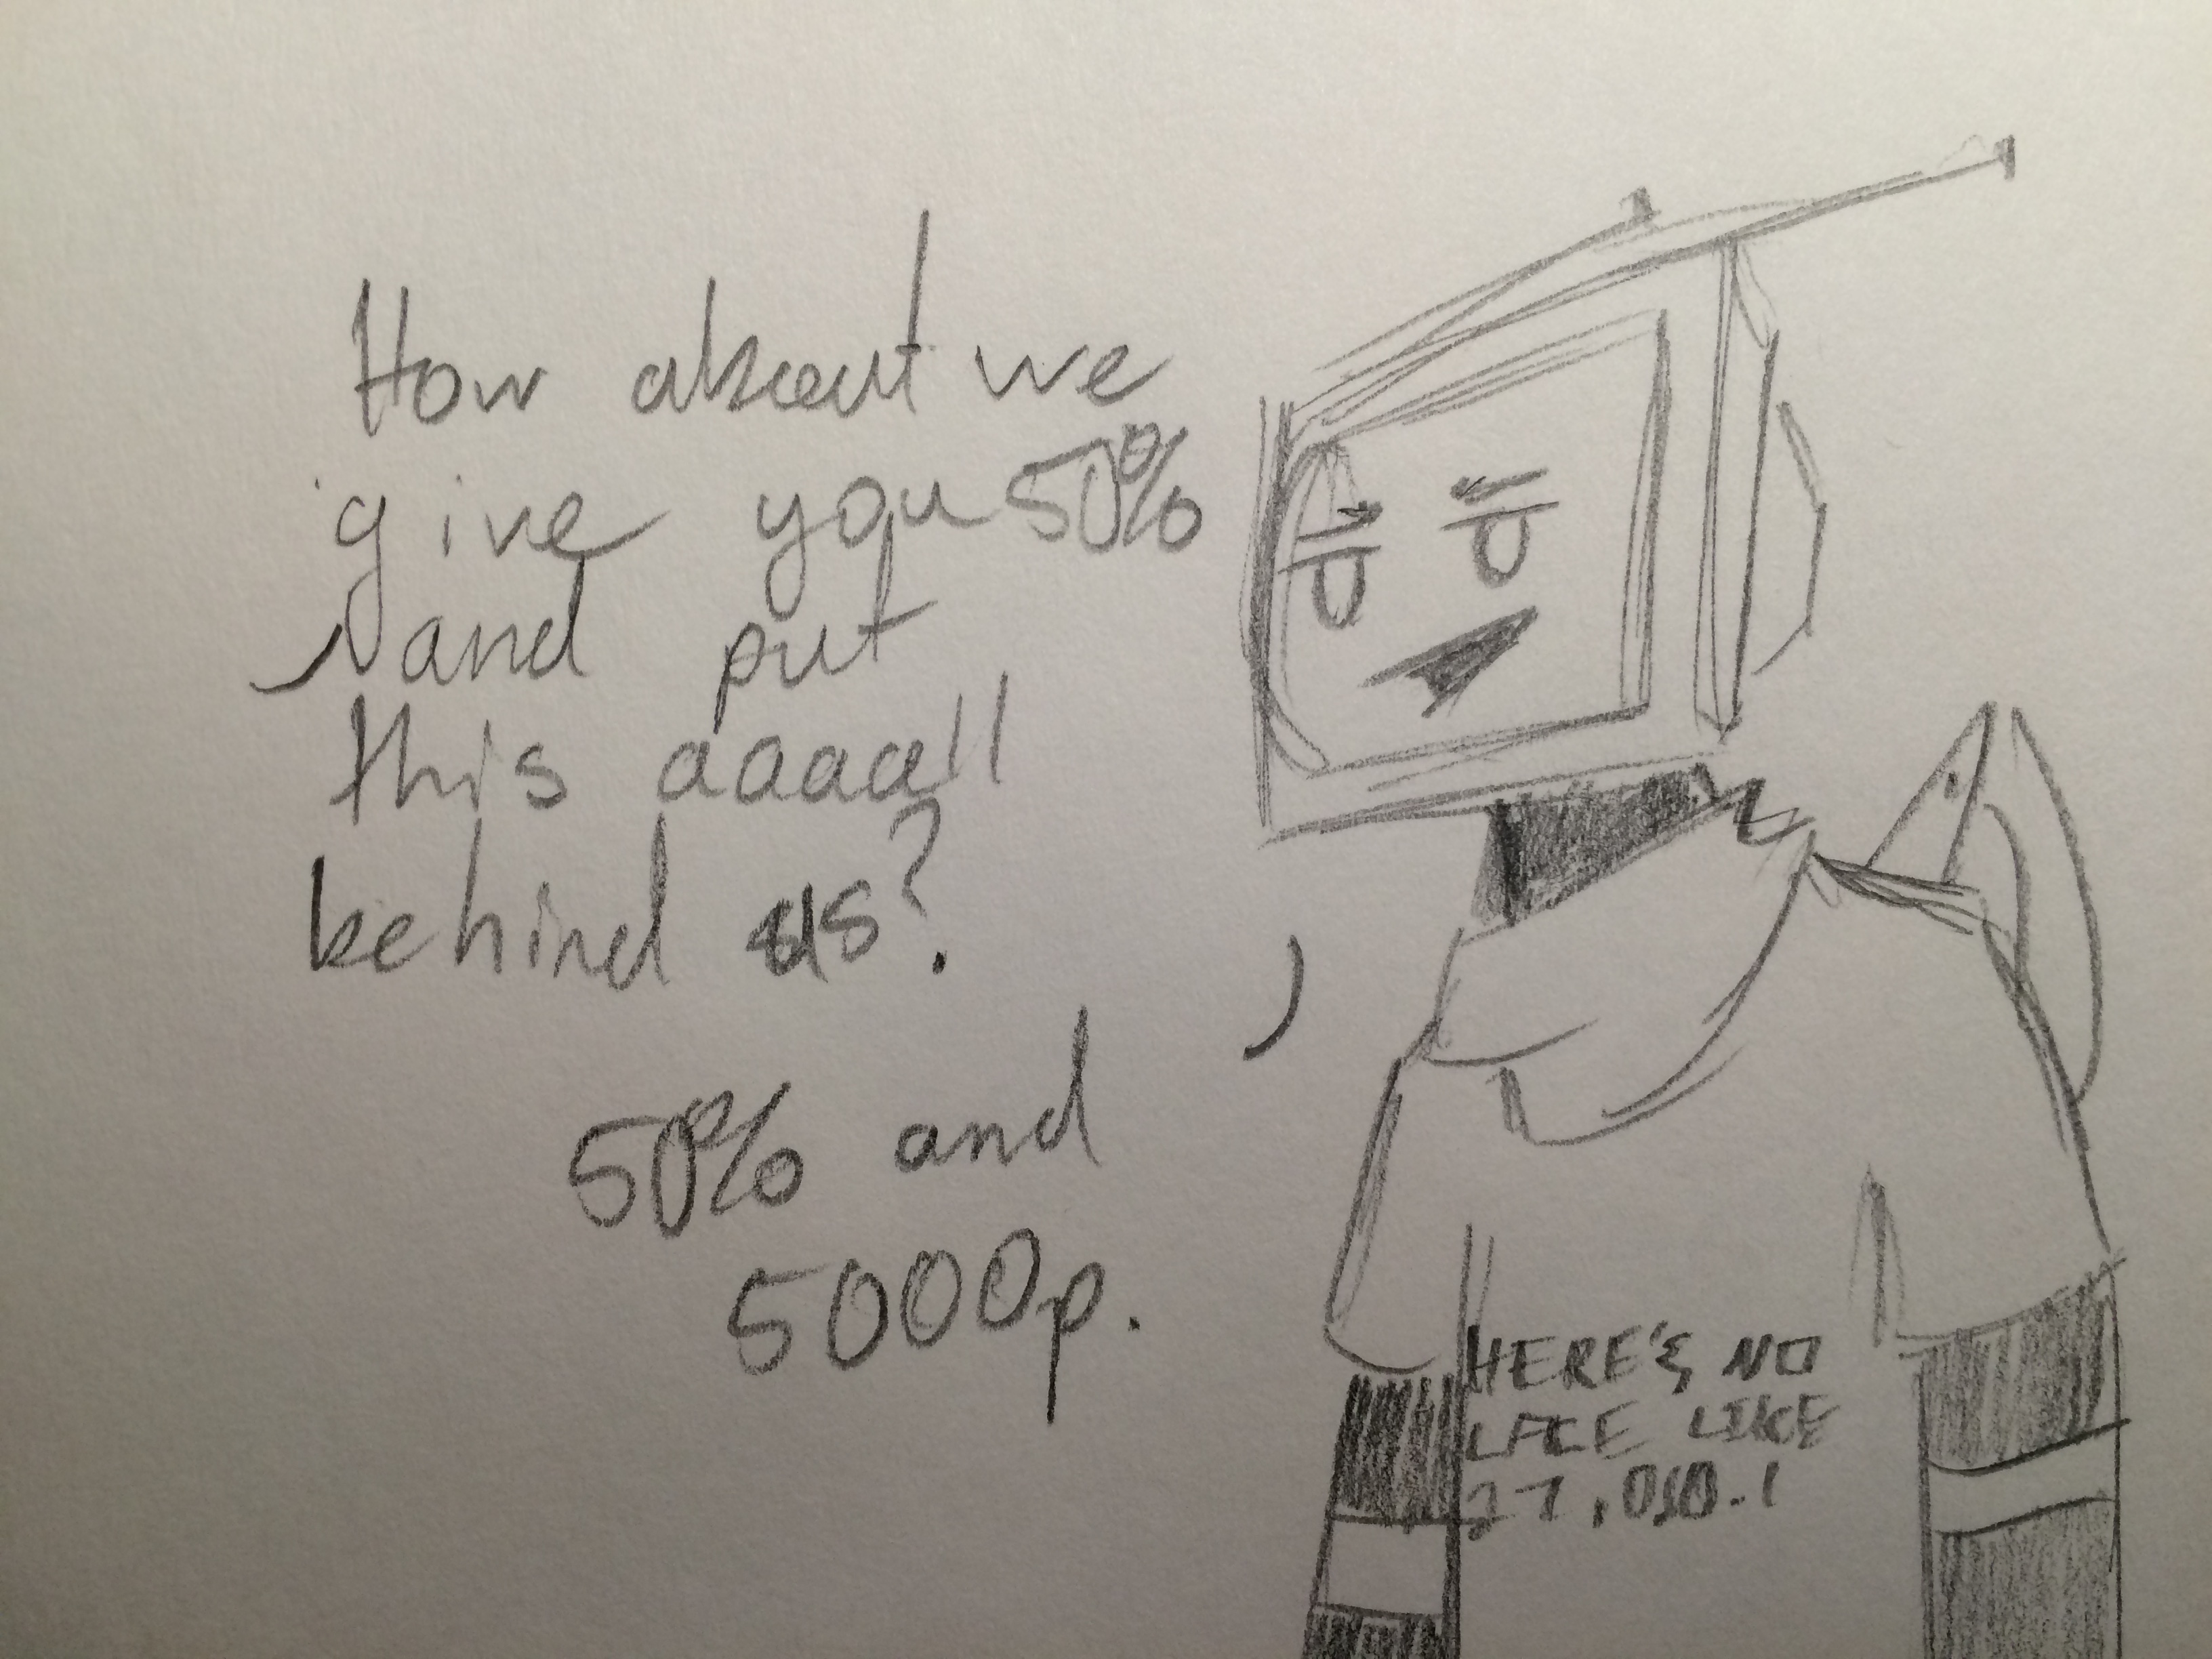 How about we
give you 50%
and put
this aaaall
behind us?
50% and
5000p.
HERE'S NO
LACE LIKE
27.0.0.1